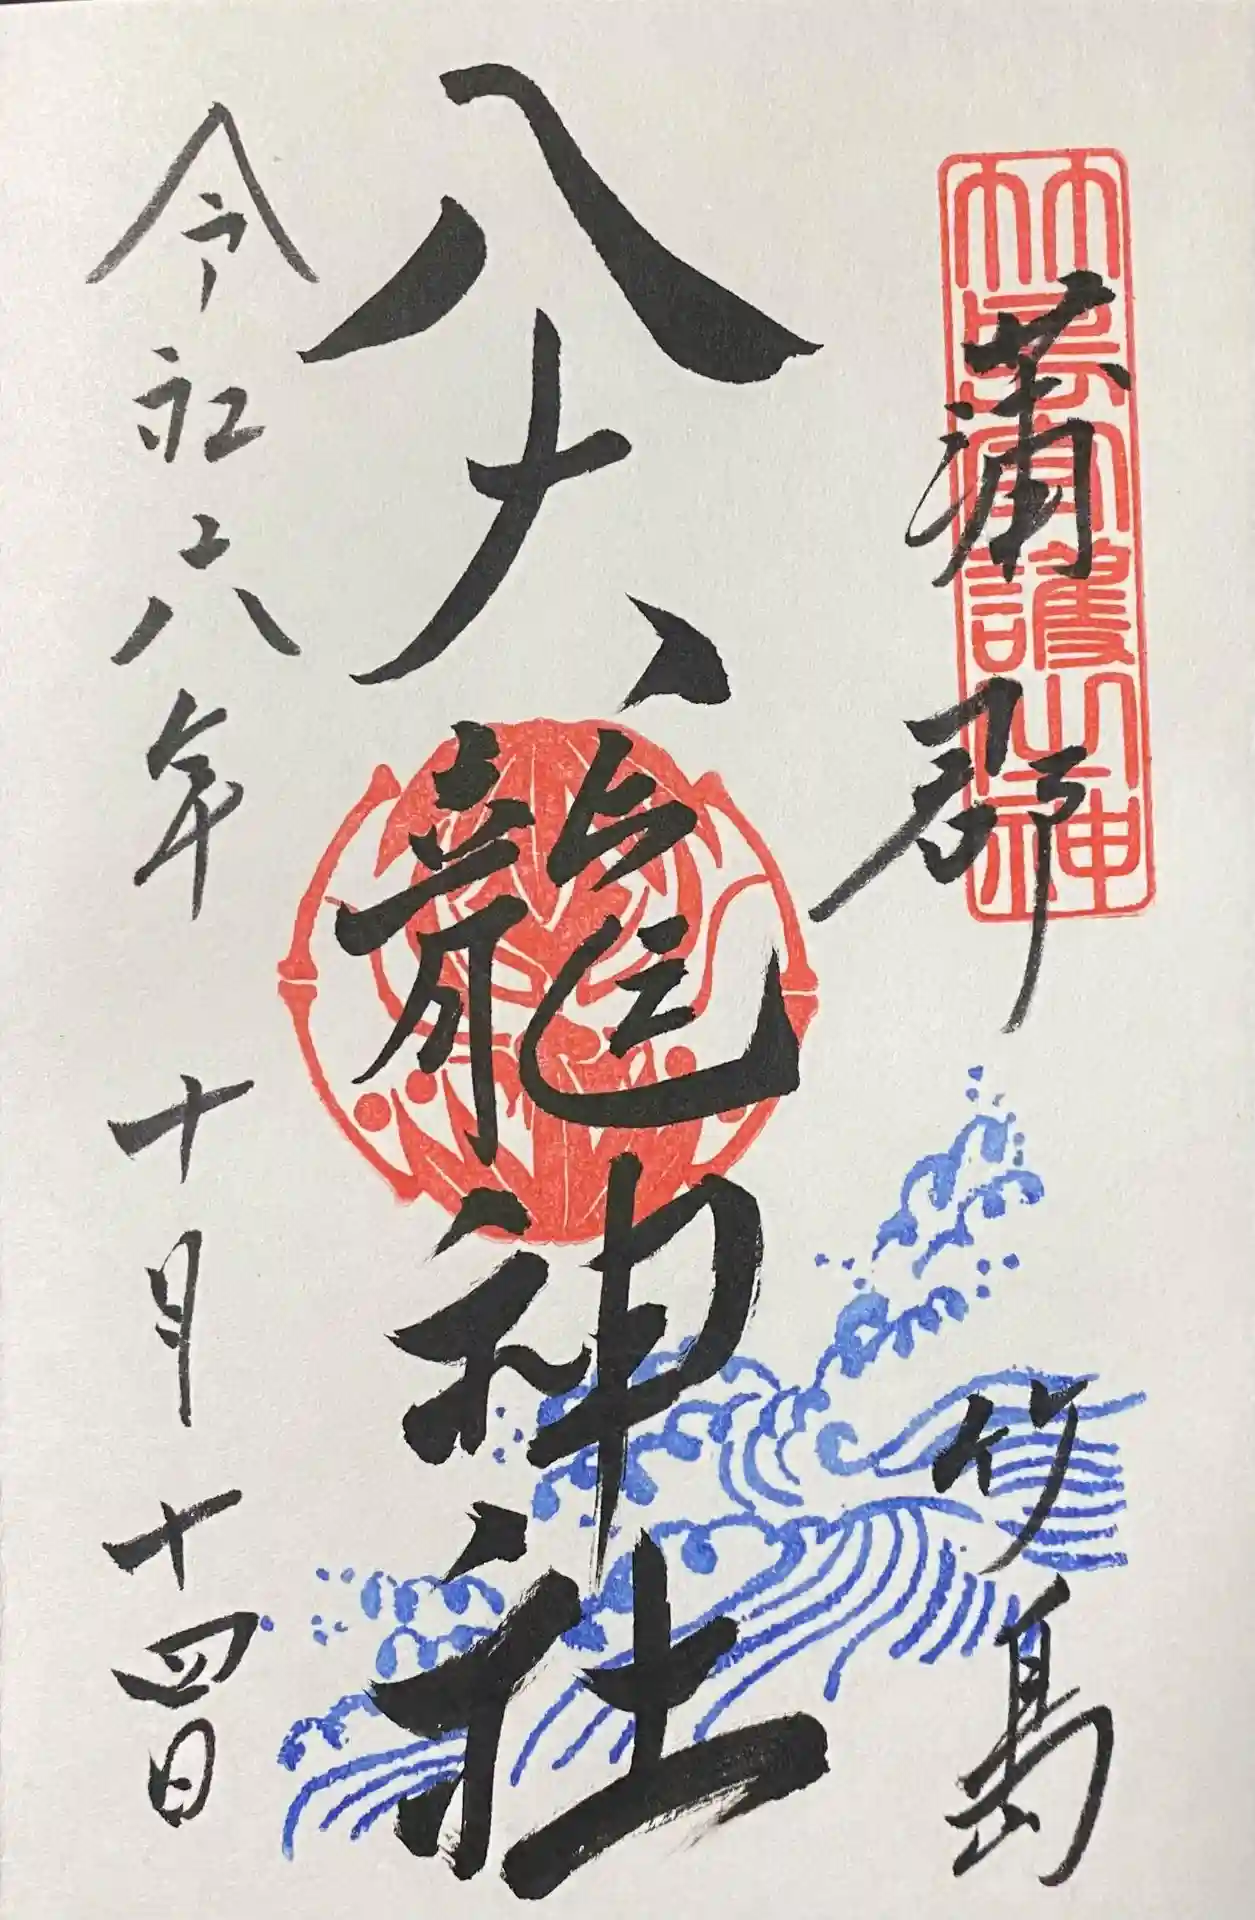 竹島守護之神
蒲郡　竹島
八大龍神社
令和六年 十月 十四日